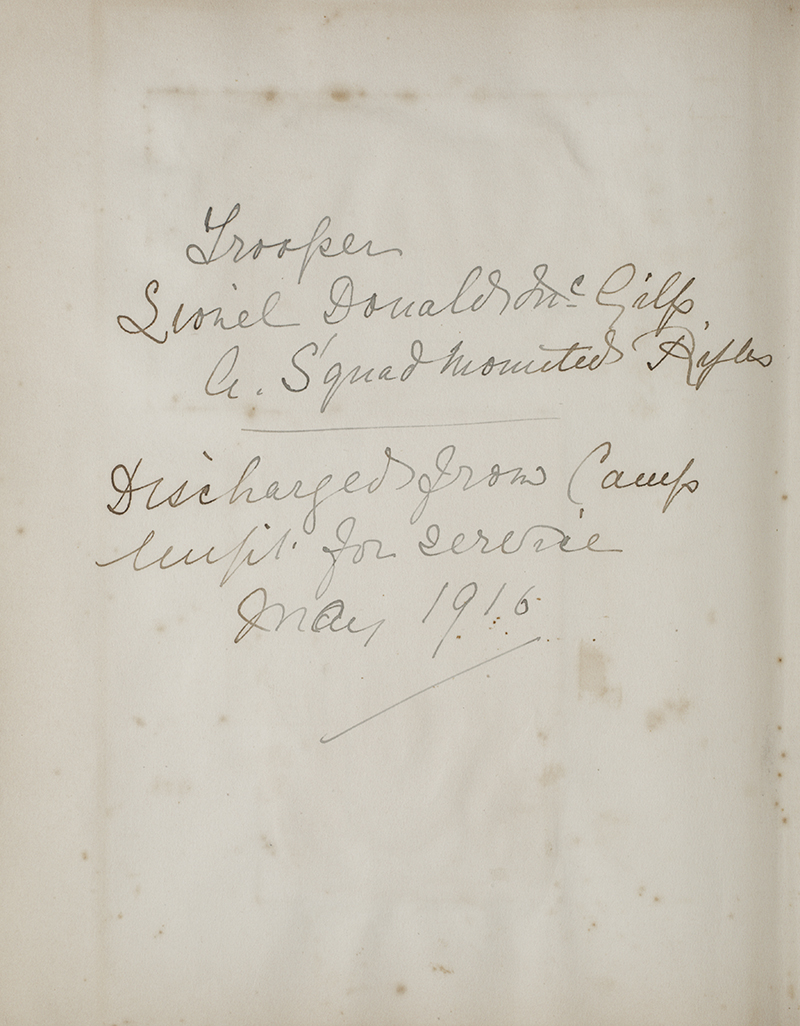 Trooper
Lionel Donald Mc Gilp
A. Squad Mounted Rifles
Discharged from Camp
unfit for service
May 1916